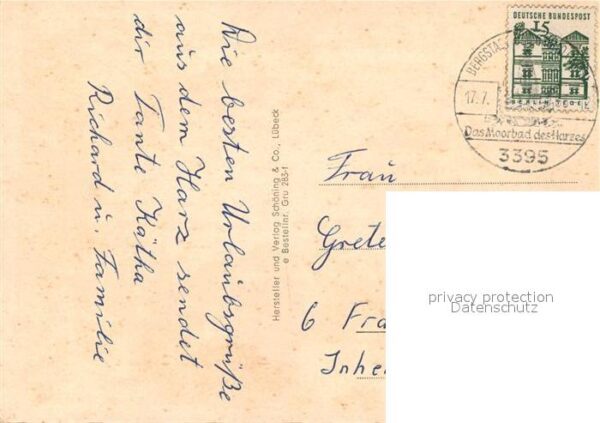 Die besten Urlaubsgrüße
aus dem Harz sendet
dir Tante Kätha
Richard u. Familie
Hersteller und Verlag Schöning & Co., Lübeck
e Bestellnr. Gru 283-1
DEUTSCHE BUNDESPOST
15
BERLIN TEGEL
BERGSTA
17.7.
Das Moorbad des Harzes
3395
Frau
Grete
6 Fra
Inhe
privacy protection
Datenschutz